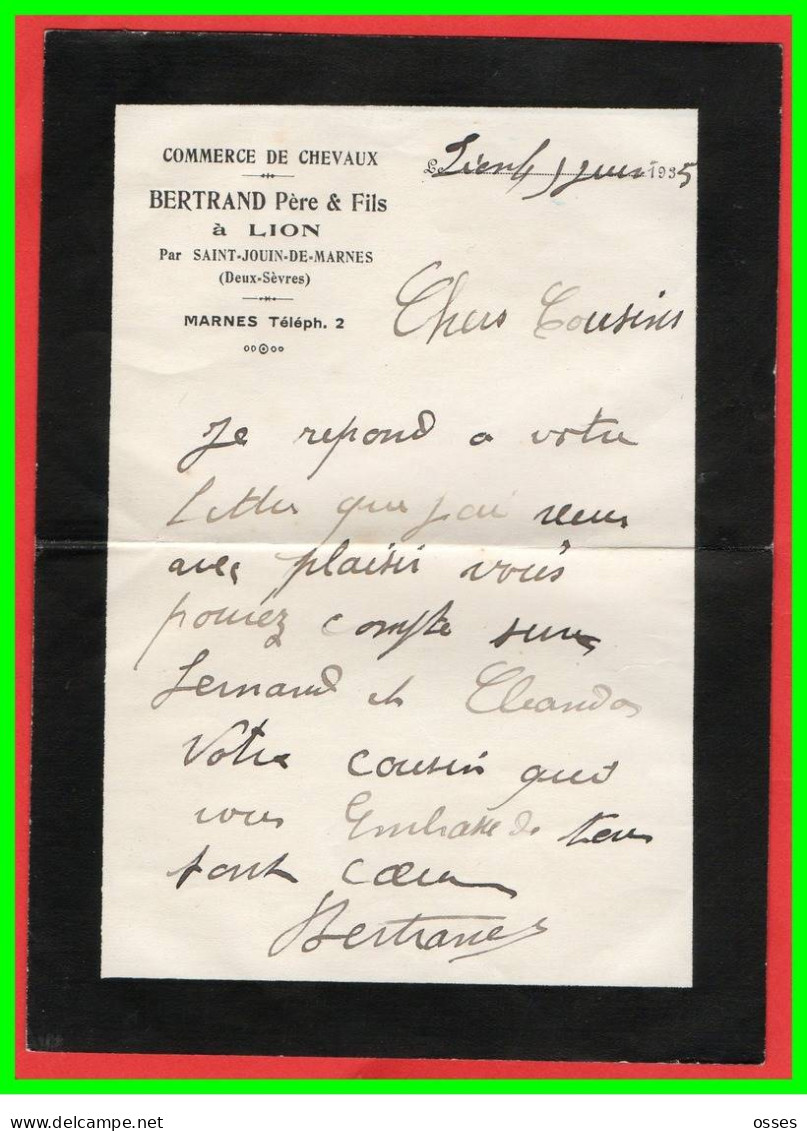 COMMERCE DE CHEVAUX
BERTRAND Père & Fils
à LION
Par SAINT-JOUIN-DE-MARNES
(Deux-Sèvres)
MARNES Téléph. 2
Le Lion 1935
Chers Cousins
Je repond a votre
lettre que jai recus
avec plaisir vous
pouvez compte sur
Fernand et
Votre cousin qui
vous Embrasse de tous
sont cœur
Bertrand
osses